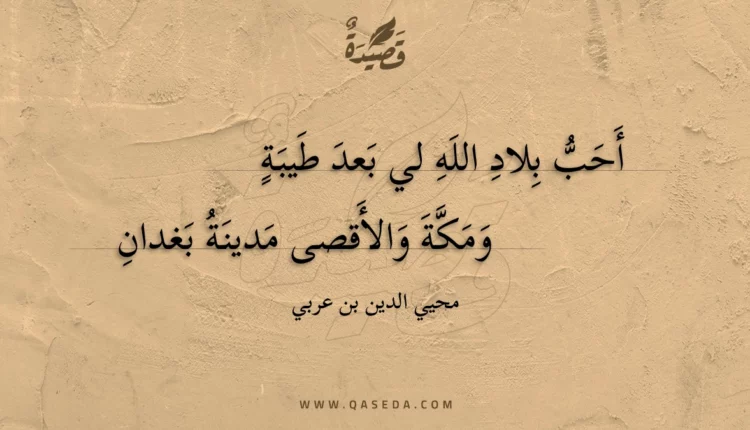 قَصِيدَةٌ
أَحَبُّ بِلادِ اللَهِ لي بَعدَ طَيبَةٍ
وَمَكَّةَ وَالأَقصى مَدينَةُ بَغدانِ
محيي الدين بن عربي
WWW.QASEDA.COM